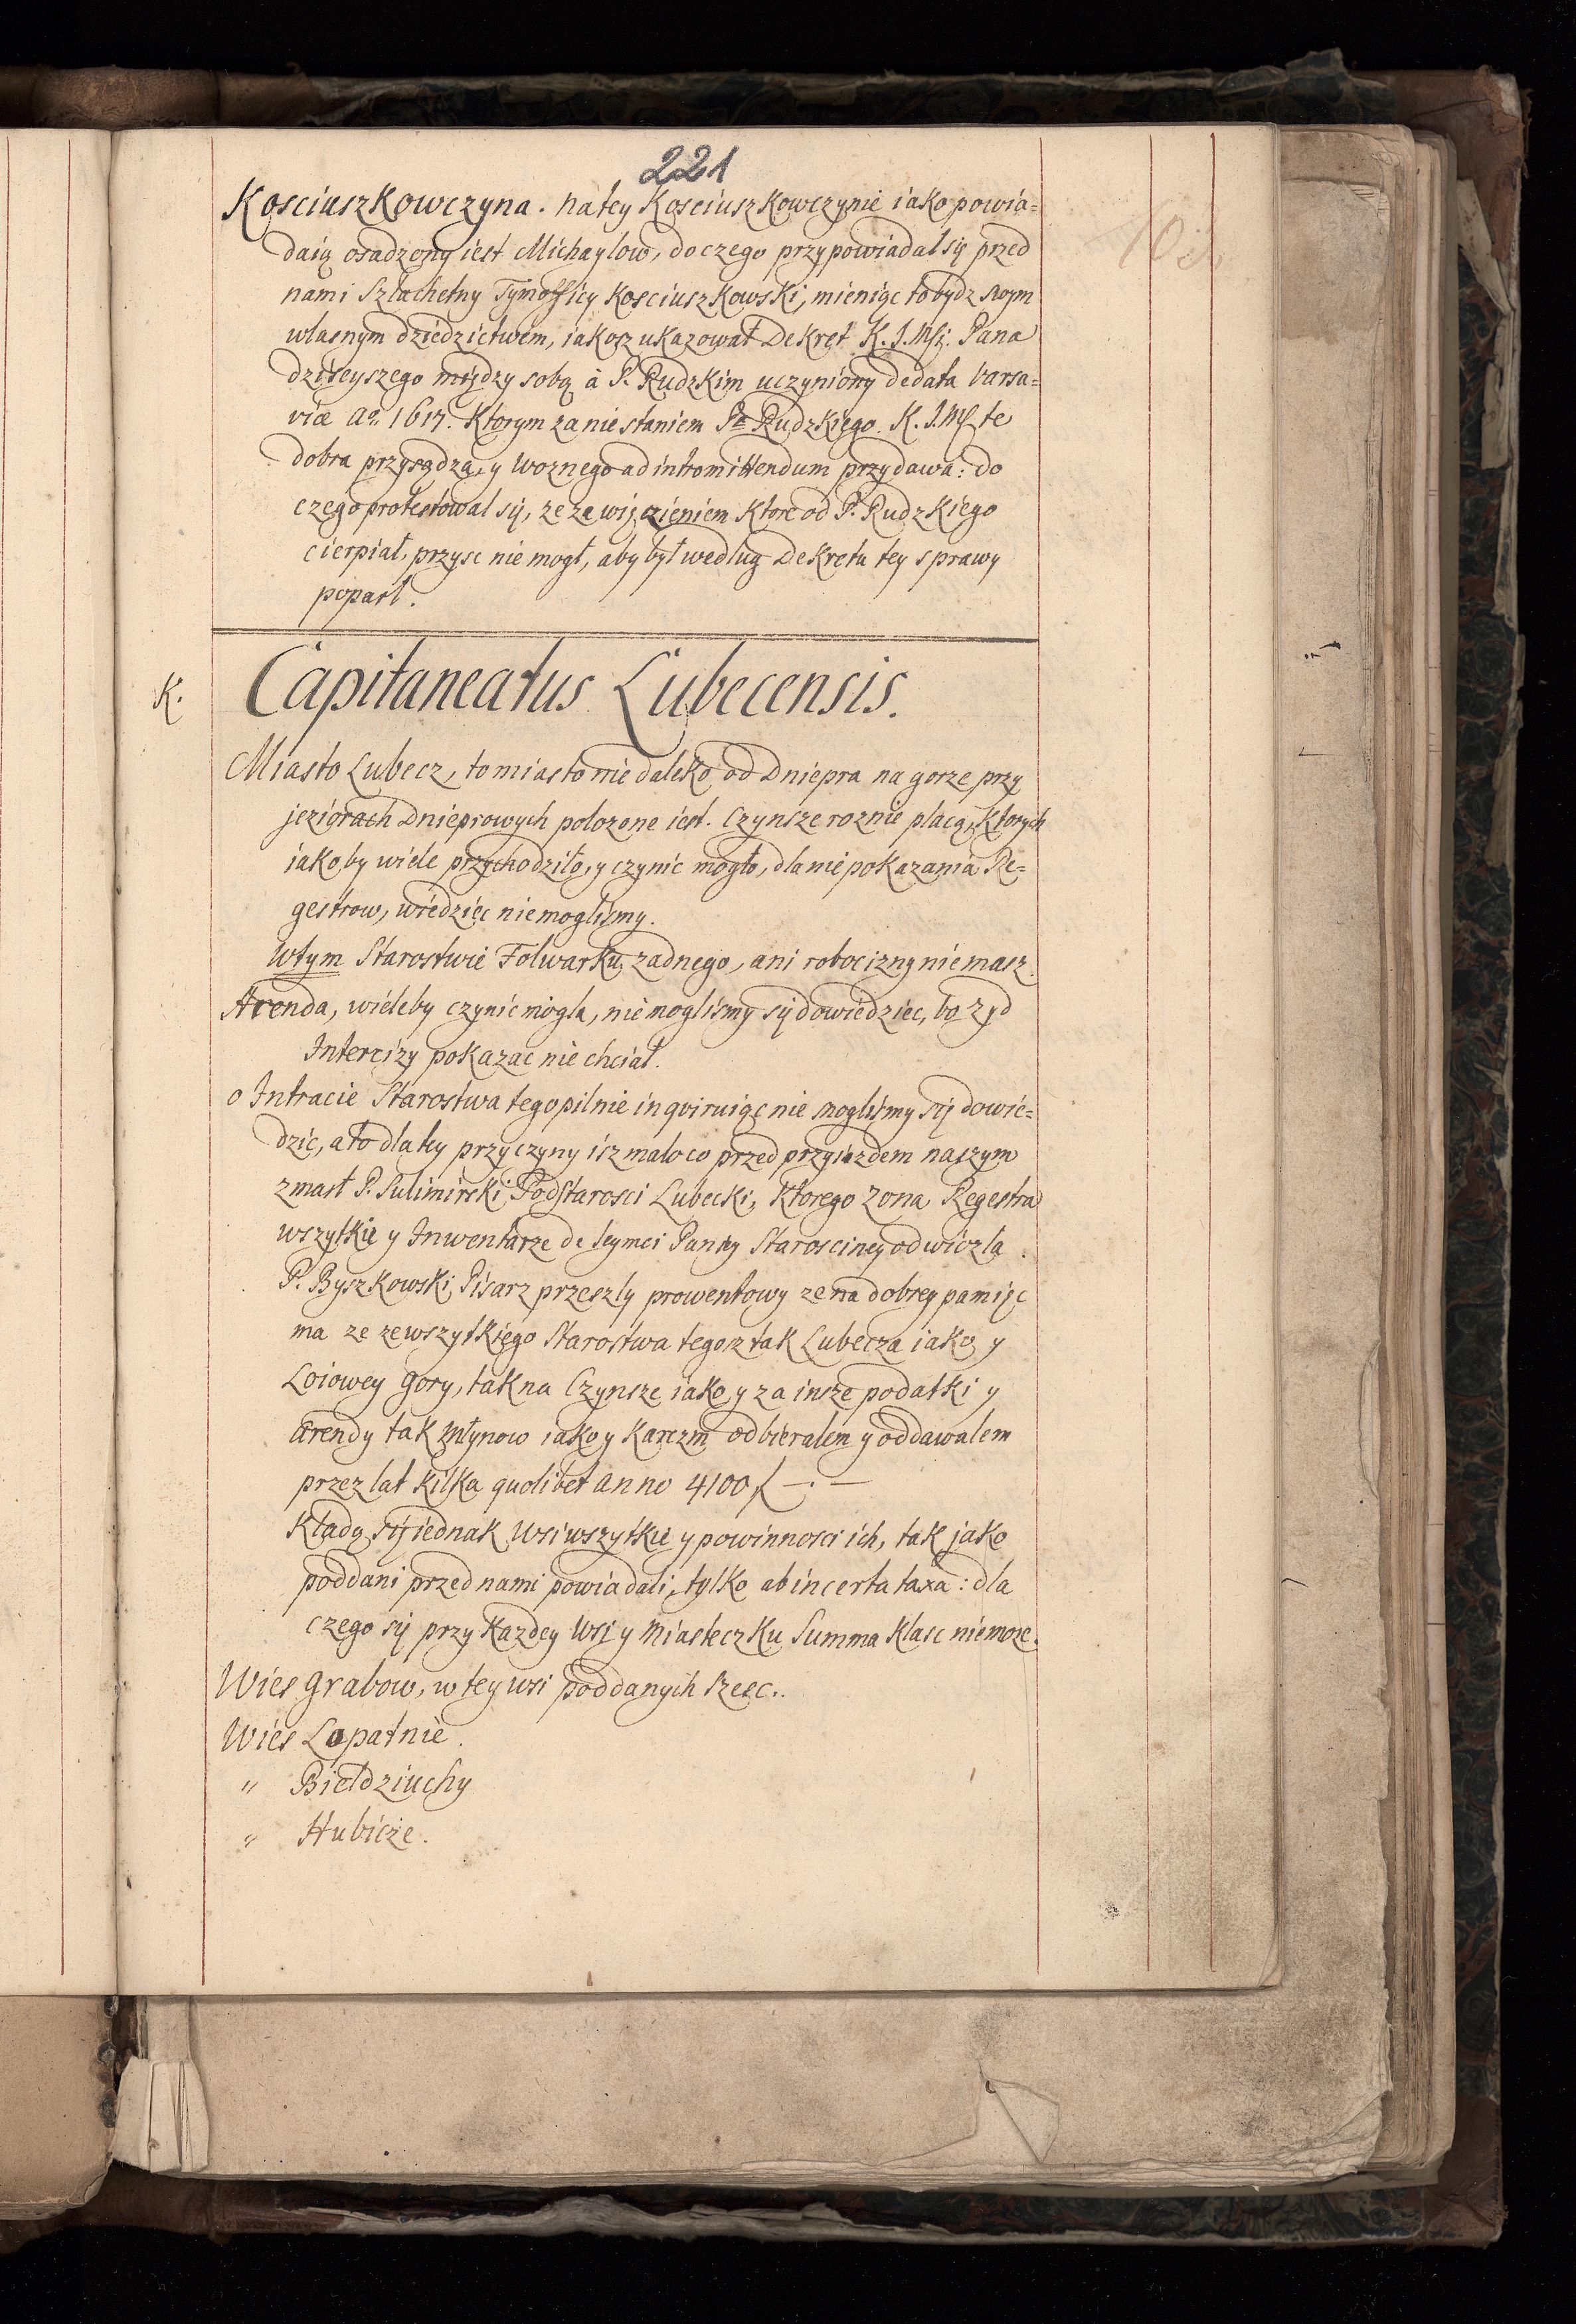 221
Kosciuszkowczyna. na tey Kosciuszkowczynie iako powia=
daią osadzony iest Michaylow, do czego przypowiadal się przed
nami Szlachetny Tymoffiey Kosciuszkowski, mieniąc to bydz swym
wlasnym dziedzictwem, iakosz ukazował Dekret K. J. Msci. Pana
dzisieyszego między sobą à P. Rudzkim uczyniony de data Varsa=
viæ Ao. 1617. Ktorym za nie staniem Pa Rudzkiego K. J. Msc te
dobra przysądza, y Woznego ad intromittendum przydawa: do
czego protestowal się, ze za więzieniem Ktore od P. Rudzkiego
cierpiał, przysc nie mogł, aby był według Dekretu tey sprawy
poparl.
K. Capitaneatus Lubecensis.
Miasto Lubecz, to miasto nie daleko od Dniepra na gorze przy
jeziorach Dnieprowych polozone iest. Czynsze roznie placą, Ktorych
iako by wiele przychodziło, y czynic mogło, dla nie pokazania Re=
gestrow, wiedziec nie moglismy.
W tym Starostwie Folwarku zadnego, ani robocizny niemasz.
Arenda, wieleby czynic mogla, nie moglismy się dowiedziec, bo Zyd
Intercizy pokazac nie chciał.
o Intracie Starostwa tego pilnie inqviruiąc nie moglismy się dowie=
dzic, a to dla tey przyczyny isz malo co przed przyiazdem naszym
zmarł P. Sulimirski Podstarosci Lubecki, Ktorego Zona Regestra
wszytkie y Inwentarze do Jeymci Paniey Starosciney odwiozla.
P. Byszkowski Pisarz przeszly prowentowy zezna dobrey pamięc
ma ze ze wszytkiego Starostwa tegosz tak Lubecza iako y
Loiowey Gory, tak na Czynsze iako y za insze podatki y
arendy tak Młynow iako y Karczm odbieralem y oddawalem
przez lat kilka quolibet anno 4100 f —·—
Kładą się iednak Wsi wszytkie y powinnosci ich, tak jako
poddani przed nami powiadali, tylko ab incerta taxa: dla
czego się przy Kazdey Wsi y Miasteczku Summa Klasc niemoze.
Wies Grabow, w tey wsi poddanych szesc.
Wies Lopatnie.
" Bieldziuchy
" Hubicze.